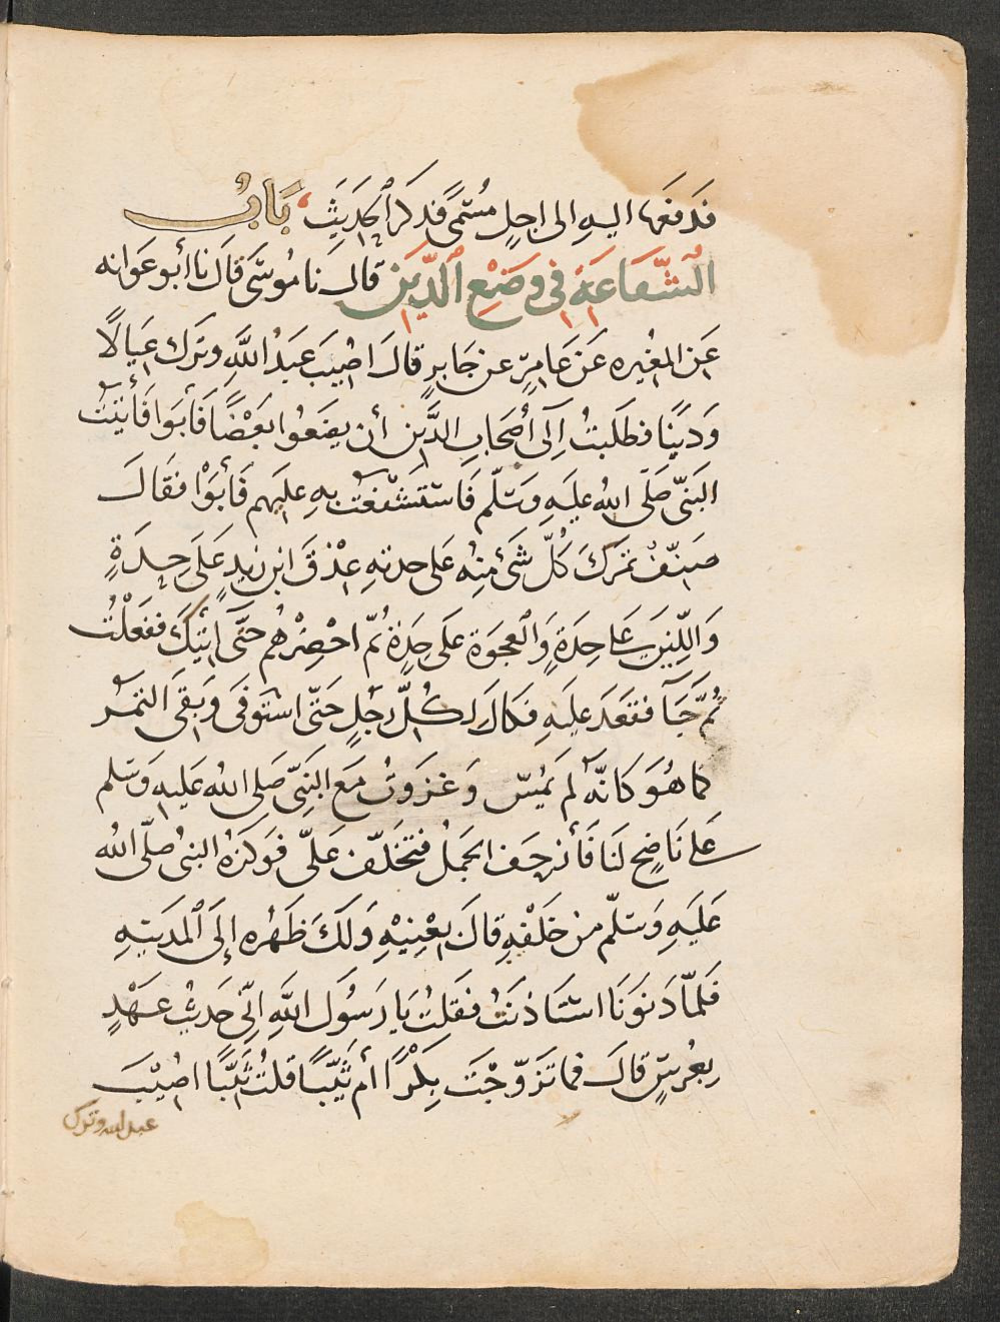 فَدَفَعَها اليهِ الى اجلٍ مُسَمًّى فَذكَرَ الحَدِيثَ ، بَابُ
الشَّفَاعَةِ فِي وَضْعِ الدَّيْنِ قال نا مُوسَى قَالَ نا أبو عَوَانه
عَنِ المغُيره عَن عَامِرٍ عن جَابرٍ قالَ اصُيبَ عَبدُ اللَّهِ وتَرك عَيَالًا
وَدَينًا فطلَبتُ اِلَى أصْحَابِ الدَّين أن يضَعُوا بَعْضًا فَأَبَوا فَأَتَيْتُ
النبىَّ صَلَى اللهُ عليهِ وَسَلّم فَاسْتَشْفَعْتُ بهِ عليهم فَأَبَوْا فقَالَ
صَنِّفْ تمَرَكَ كُلَّ شَىْءٍ مِنهُ عَلى حدتهِ عِذْقَ ابنِ زَيدٍ عَلَى حِدَةٍ
وَاللّينَ عَلى حِدَةٍ وَالْعجوَةَ عَلَى حِدَةٍ ثُمّ احْضِرْهُم حَتَّى اٰتِيَكَ ففَعَلْتُ
ثُمَّ جَآ فقعَدَ عليهِ فكَالَ لكُلِّ رَجُلٍ حَتّى اسْتَوفَى وَبَقىَ التَمْر
كما هُوَ كَانَّهُ لَم يُمسَّ وَغزَوتُ مَع النَبىّ صَلى الله عَليه وَسَلم
عَلى نَاضحٍ لنَا فَأَزحَفَ الجَملُ فتخَلّفَ عَلىَّ فَوَكزَهُ النبىُ صلّى الله
عَليَهِ وَسَلّم من خَلْفهِ قالَ بِعْنِيْهِ وَلَكَ ظَهْره إِلَى الْمَدينهِ
فَلمّا دَنَوَنَا اسْتَاذنَتُ فقَلتُ يَا رَسُولَ اللَّهِ اِنّى حَديْثُ عَهْدٍ
بعُرسٍ قالَ فما تَزَوّجْتَ بِكرًا أم ثَيِّبًا قلتُ ثَيّبًا اصُيْبَ
عبد الله وترك